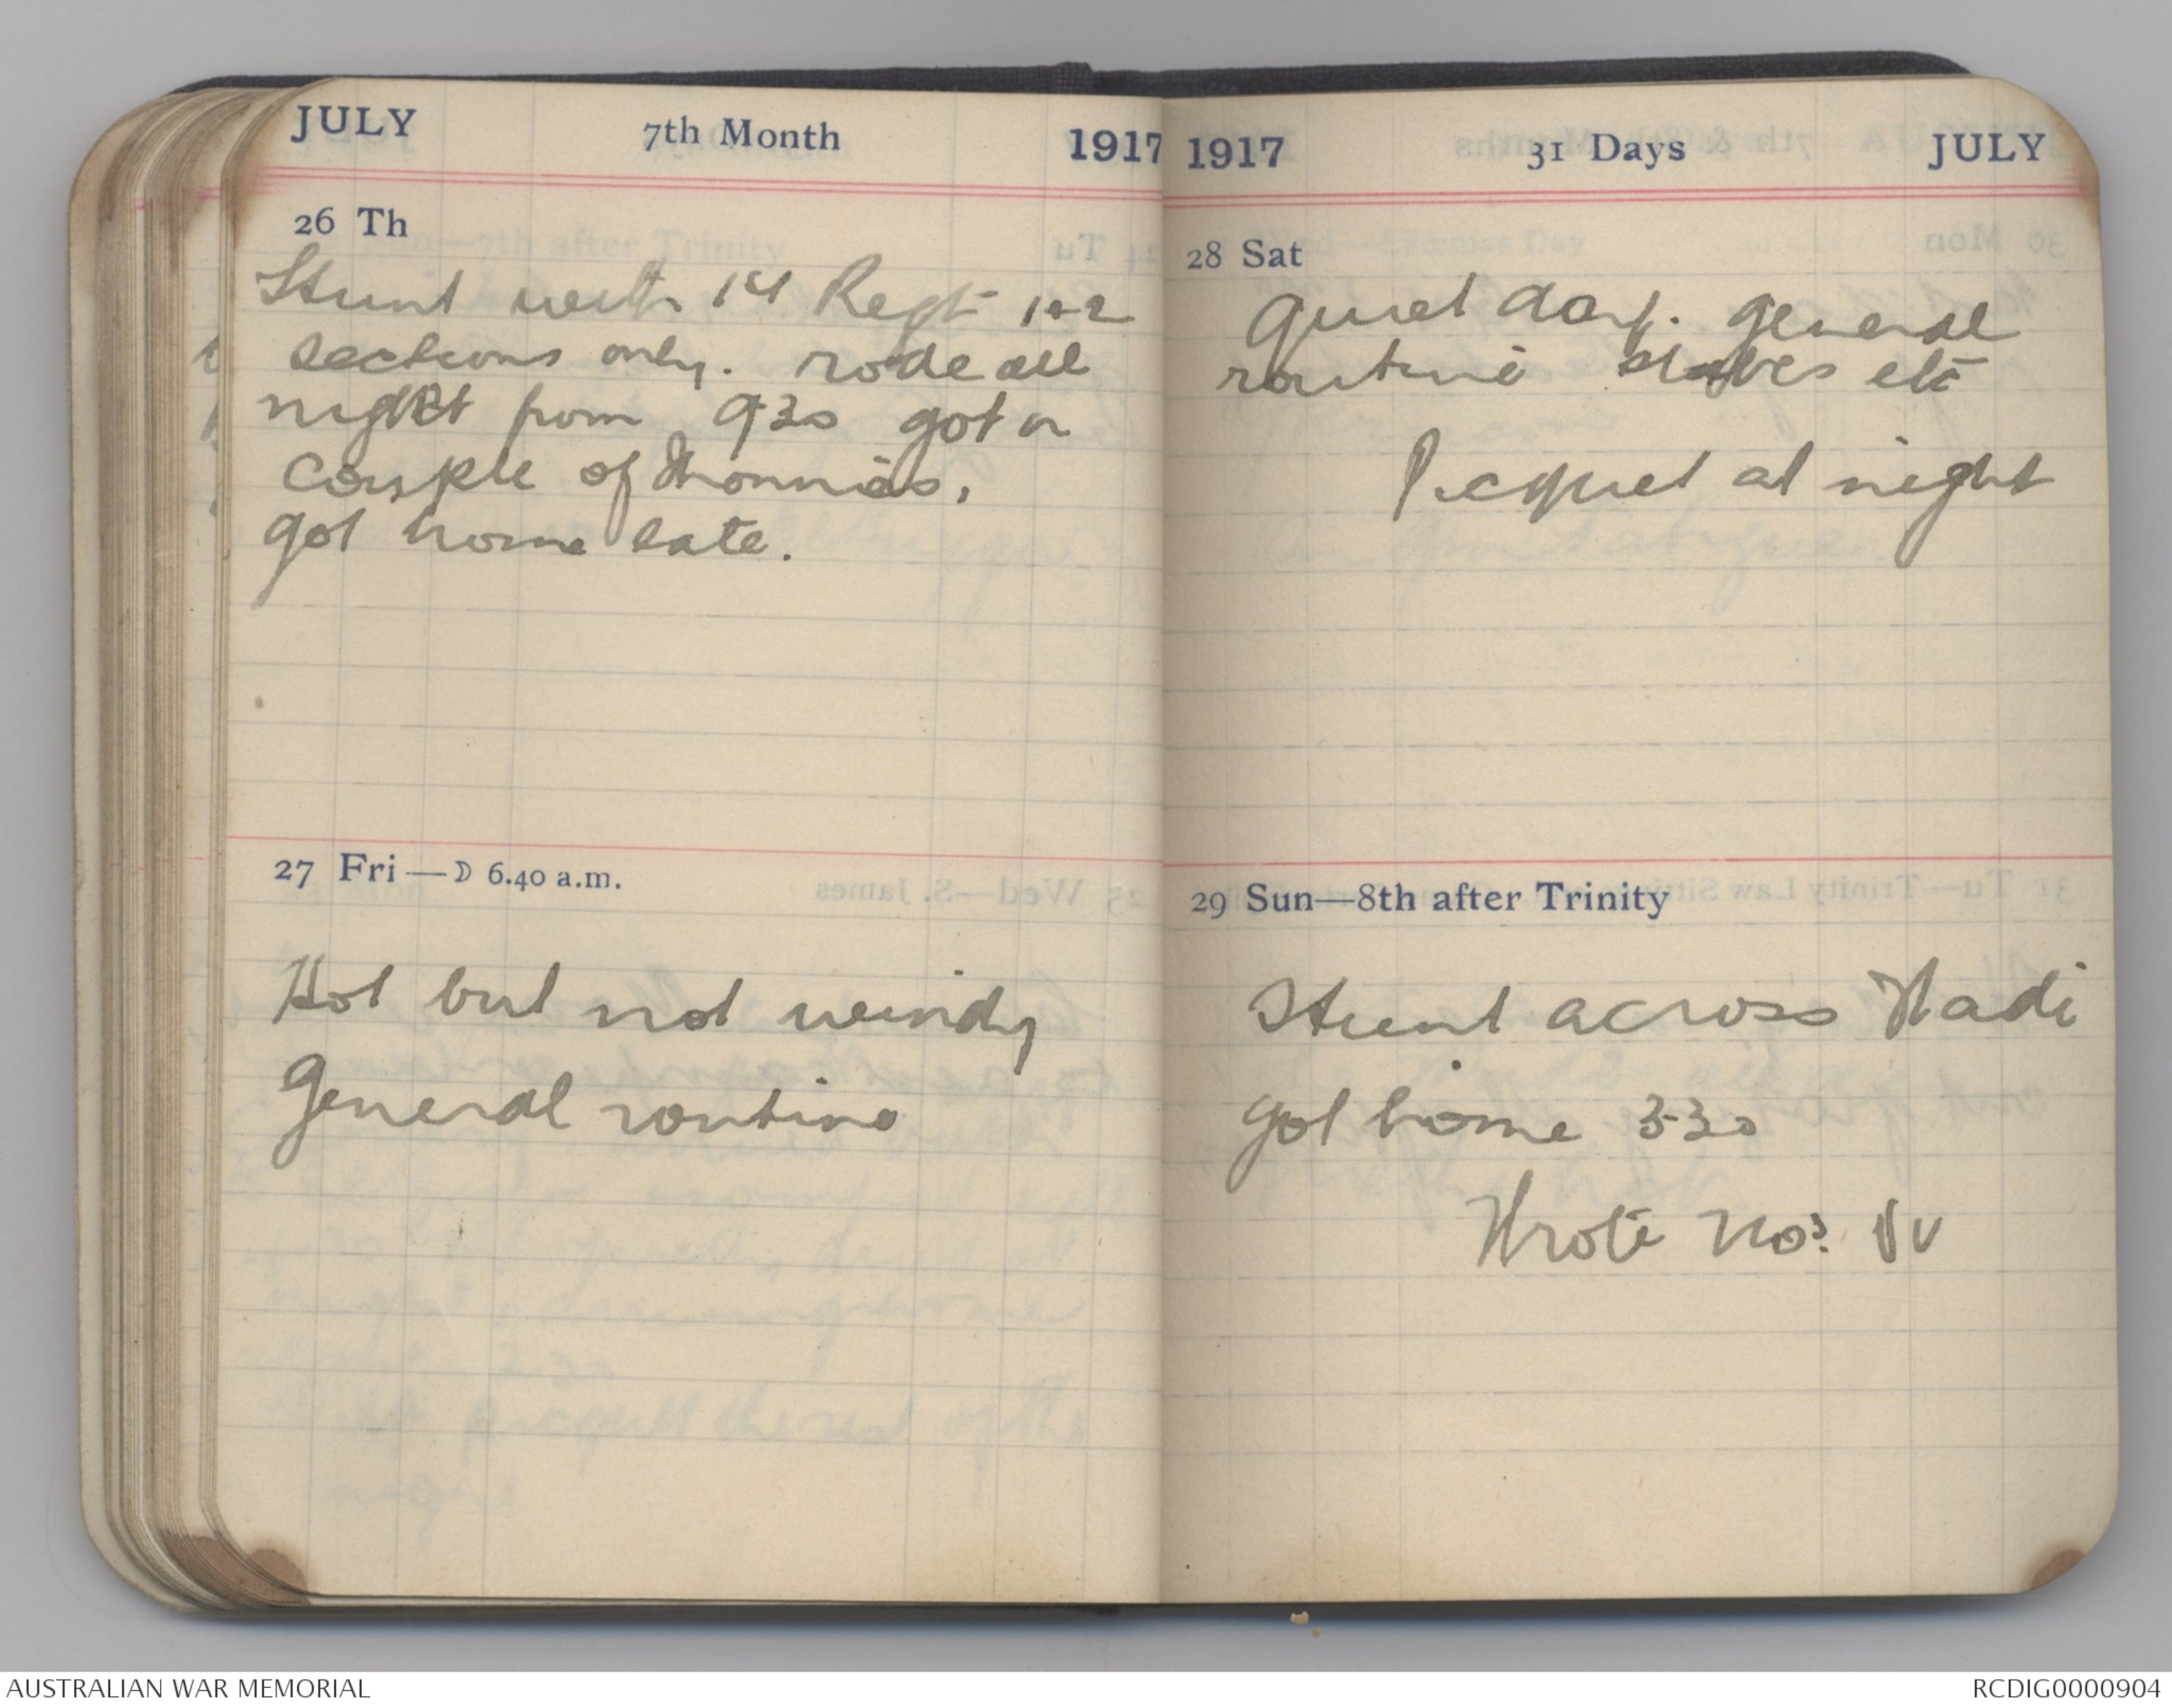 JULY 7th Month 1917
26 Th
Stunt with 1st Regt 1+2
sections only. rode all
night from 9-30 got a
couple of
got home late.
27 Fri—☽ 6.40 a.m.
Hot but not windy
General routine
1917 31 Days JULY
28 Sat
Quiet day. General
routine stables etc
Picquet at night
29 Sun—8th after Trinity
Stunt across Wadi
got home 3-30
Wrote
AUSTRALIAN WAR MEMORIAL
RCDIG0000904